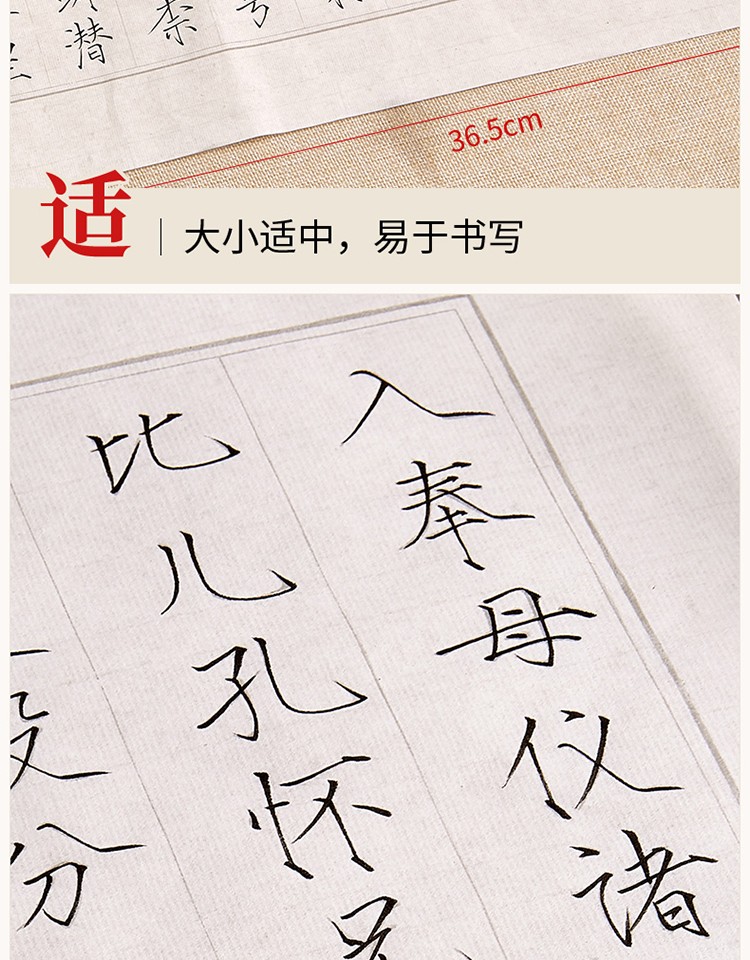 号
柰
潜
36.5cm
适
大小适中，易于书写
入奉母仪诸
比儿孔怀兄
分